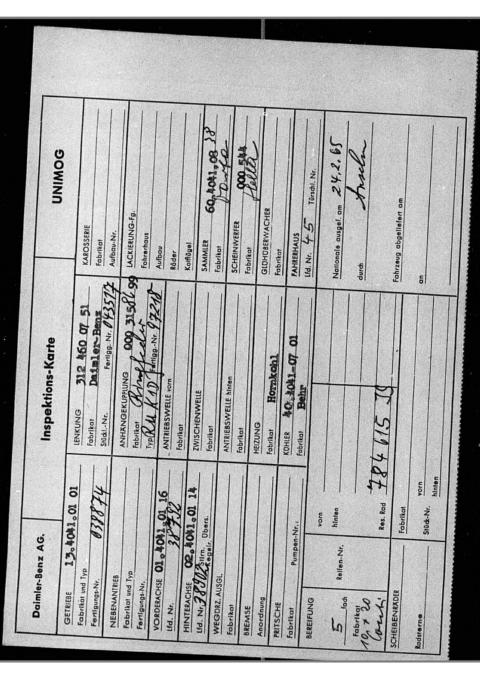 Daimler-Benz AG.
Inspektions-Karte
UNIMOG
GETRIEBE 13.4041.01 01
Fabrikat und Typ
Fertigungs-Nr. 038874
NEBENANTRIEB
Fabrikat und Typ
Fertigungs-Nr.
VORDERACHSE 01.4041.01 16
Lfd. Nr.
HINTERACHSE 02.4041.01 14
Lfd. Nr.
WEGDRZ. AUSGL.
Fabrikat
BREMSE
Anordnung
PRITSCHE
Fabrikat
Pumpen-Nr.:
LENKUNG 312 460 07 51
Fabrikat Daimler-Benz
Stück-Nr. Fertigg. Nr. 043577
ANHÄNGEKUPPLUNG 000 315 86 99
Fabrikat
Typ Fertigg.-Nr. 97210
ANTRIEBSWELLE vorn
Fabrikat
ZWISCHENWELLE
Fabrikat
ANTRIEBSWELLE hinten
Fabrikat
HEIZUNG
Fabrikat Hornkohl
KÜHLER 40.4041.07 01
Fabrikat Behr
KAROSSERIE
Fabrikat
Aufbau-Nr.
LACKIERUNG-Fg.
Fahrerhaus
Aufbau
Räder
Kotflügel
SAMMLER 60.4041.08 28
Fabrikat
SCHEINWERFER 000 544
Fabrikat Hella
GLÜHÜBERWACHER
Fabrikat
FAHRERHAUS
Lfd. Nr. 45 Türschl. Nr.
BEREIFUNG
5 fach Reifen-Nr.
Fabrikat
vorn
hinten
Res. Rad 784615
SCHEIBENRÄDER
Fabrikat
Radsterne
Stück-Nr.
vorn
hinten
Nationale ausgef. am 24.2.65
durch
Fahrzeug abgeliefert am
an